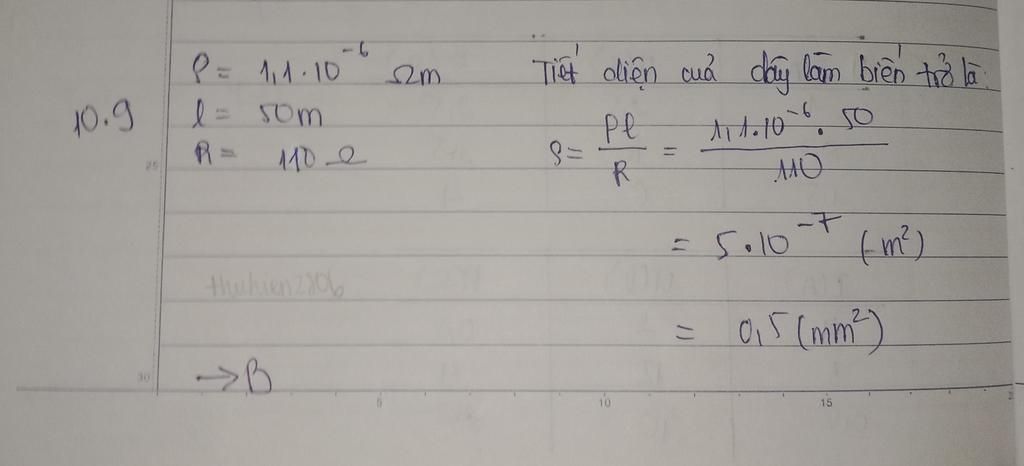 10.9
ρ = 1,1.10⁻⁶ Ωm
l = 50m
R = 110 Ω
Tiết diện cuả dây làm biến trở là:
S = ρl/R = 1,1.10⁻⁶.50/110
= 5.10⁻⁷ (m²)
= 0,5 (mm²)
thuhien2806
→ B
25
30
5
10
15